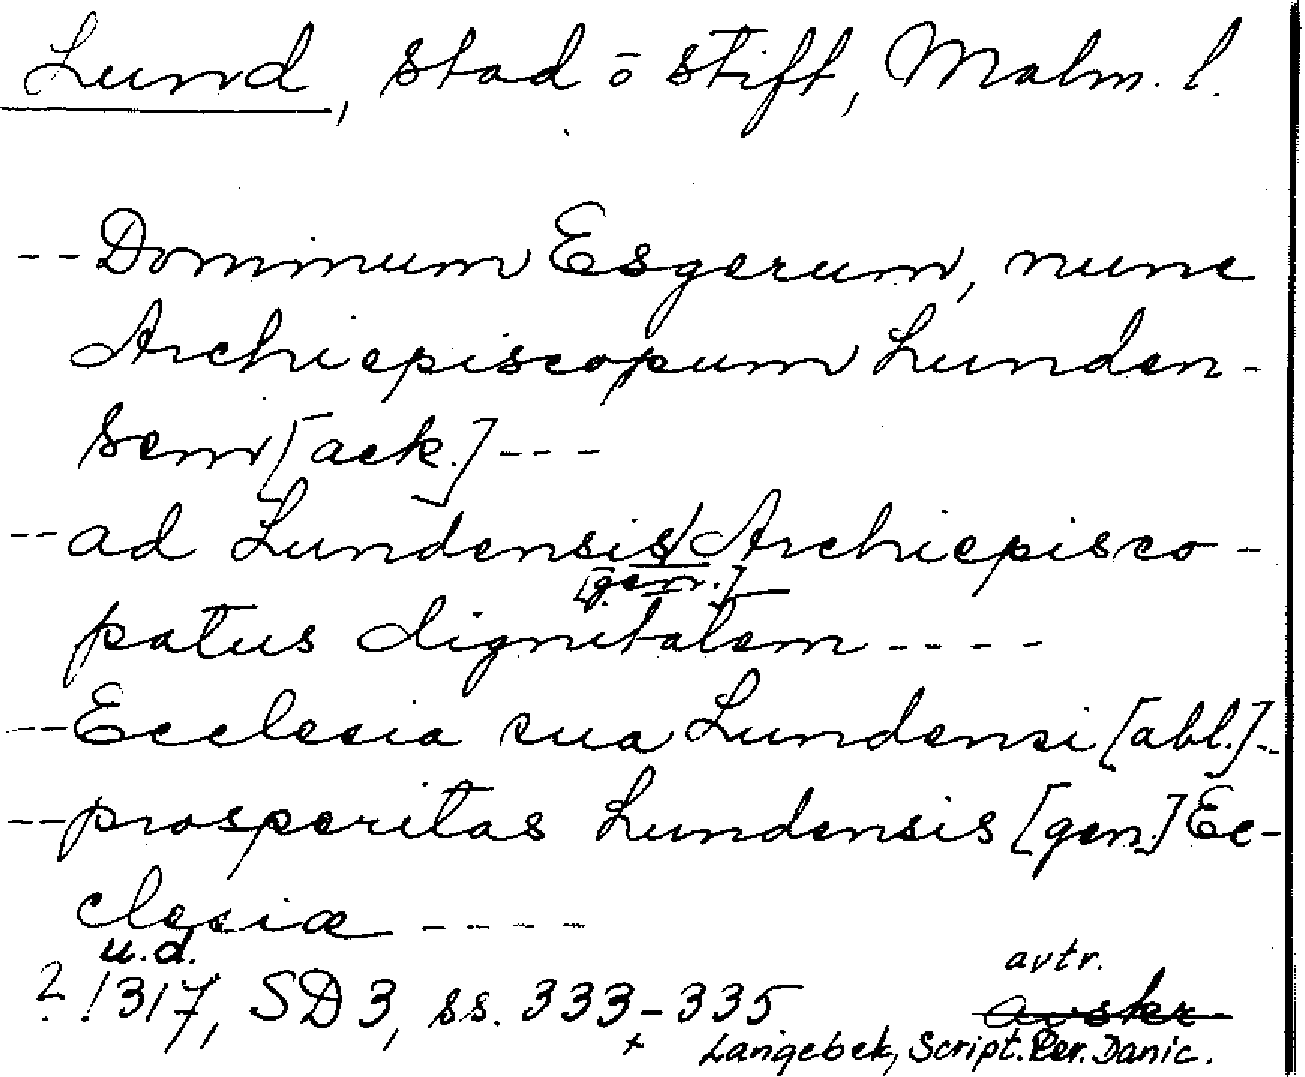 Lund, stad ō stift, Malm. l.
-- Dominum Esgerum, nunc
Archiepiscopum Lunden-
sem [ack.] ---
-- ad Lundensis Archiepisco-
[gen.]
patus dignitatem ----
-- Ecclesia sua Lundensi [abl.] --
-- prosperitas Lundensis [gen.] Ec-
clesiæ -----
u.d.
? 1317, SD 3, ss. 333-335 avtr.
avskr.
+ Langebek, Script. Rer. Danic.